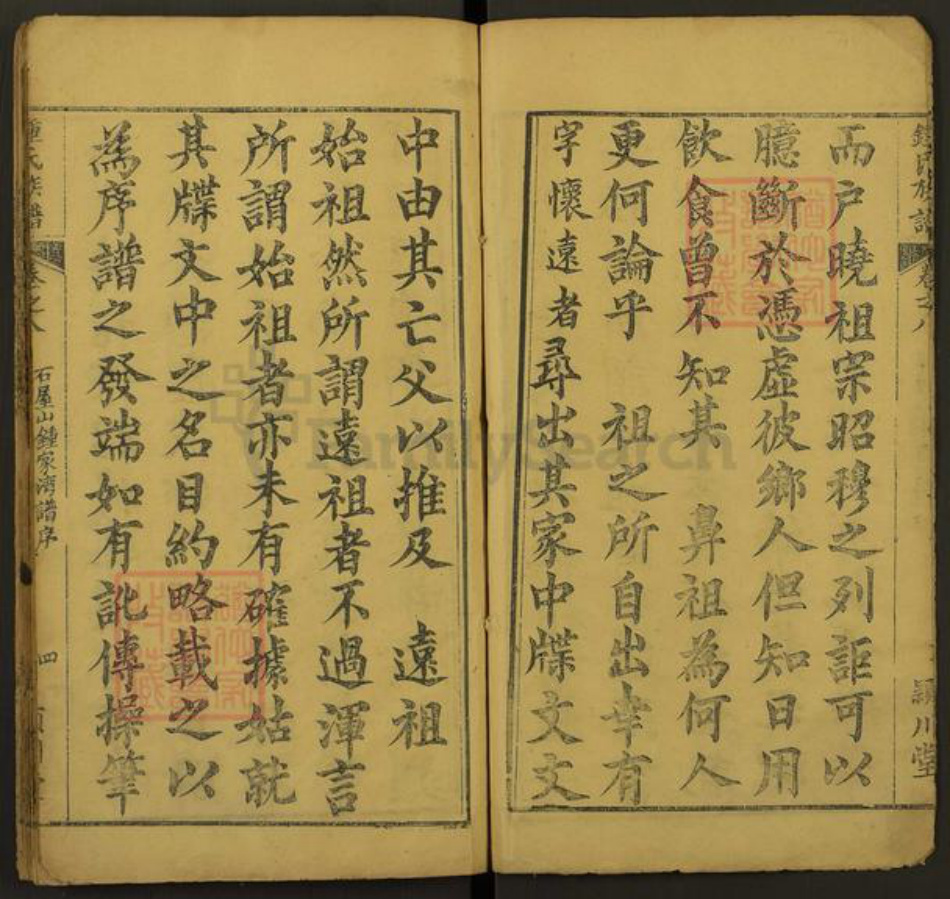 鍾氏族譜 卷之八 潁川堂
而戶曉祖宗昭穆之列詎可以
臆斷於憑虛彼鄉人但知日用
飲食曾不知其 鼻祖為何人
更何論乎 祖之所自出幸有
字懷遠者尋出其家中牒文文
中由其亡父以推及 遠祖
始祖然所謂遠祖者不過渾言
所謂始祖者亦未有確據姑就
其牒文中之名目約略載之以
為序譜之發端如有訛傳操筆
鍾氏族譜 卷之八 石屋山鍾家湾譜序 四
FamilySearch